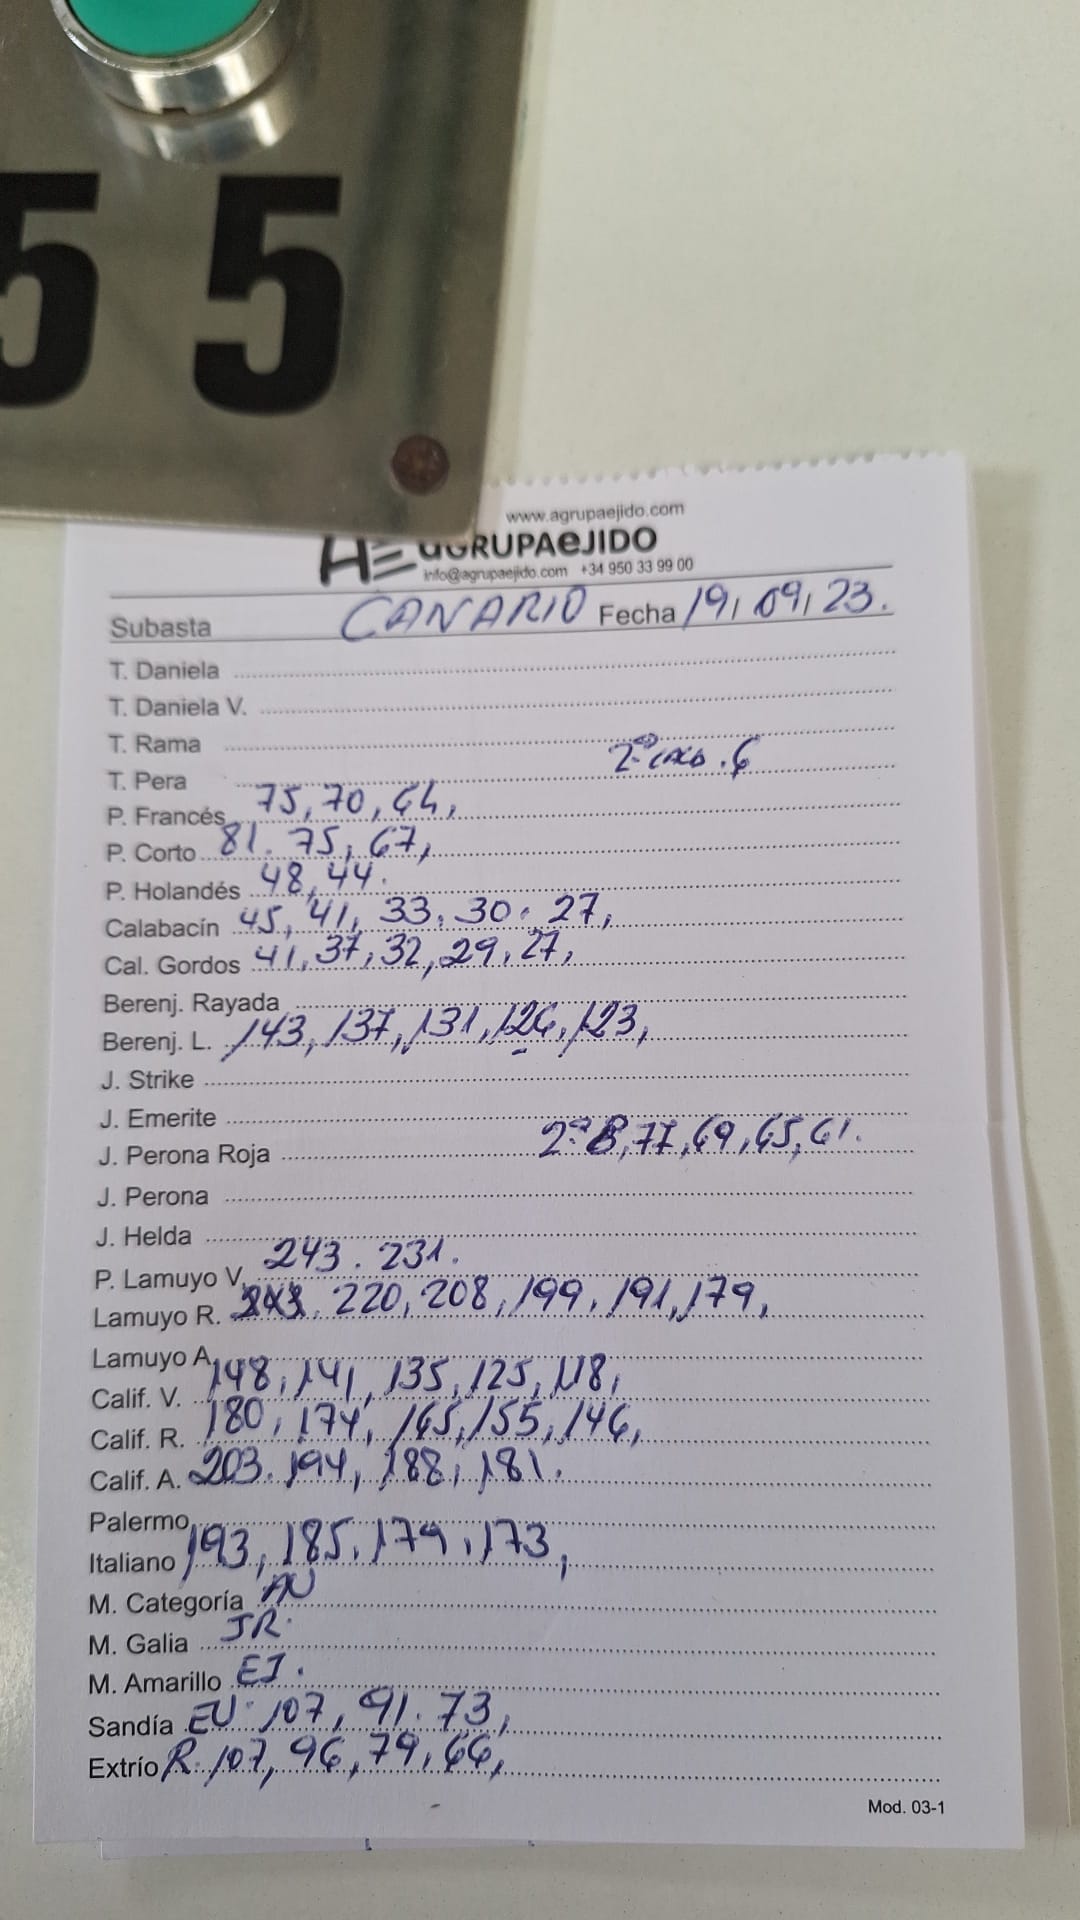 55
www.agrupaejido.com
AE aGRUPAeJIDO
info@agrupaejido.com +34 950 33 99 00
Subasta CANARIO Fecha 19, 09, 23.
T. Daniela
T. Daniela V.
T. Rama
T. Pera 2ª . 6
P. Francés 75, 70, 64,
P. Corto 81. 75, 67,
P. Holandés 48, 44.
Calabacín 45, 41, 33, 30. 27,
Cal. Gordos 41, 37, 32, 29, 27,
Berenj. Rayada
Berenj. L. 143, 137, 131, 126, 123,
J. Strike
J. Emerite
J. Perona Roja 2ª B, 77, 69, 65, 61.
J. Perona
J. Helda
P. Lamuyo V. 243. 231.
Lamuyo R. 220, 208, 199, 191, 179,
Lamuyo A.
Calif. V. 148, 141, 135, 125, 118,
Calif. R. 180, 174, 165, 155, 146,
Calif. A. 203. 194, 188, 181.
Palermo
Italiano 193, 185, 179, 173,
M. Categoría AU
M. Galia JR.
M. Amarillo EJ.
Sandía EU. 107, 91. 73,
Extrío R. 107, 96, 79, 66,
Mod. 03-1